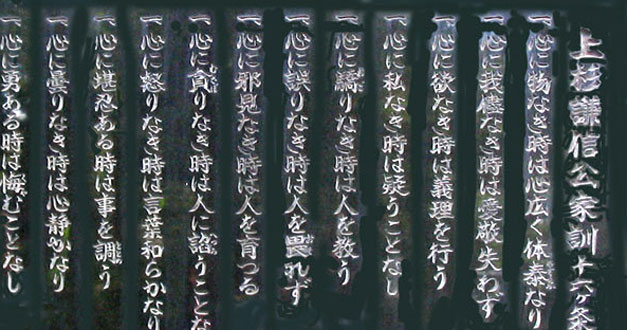 上杉謙信公家訓十六ケ条
一心に物なき時は心広く体泰なり
一心に我儘なき時は愛敬失わず
一心に欲なき時は義理を行う
一心に私なき時は疑うことなし
一心に驕りなき時は人を教う
一心に誤りなき時は人を畏れず
一心に邪見なき時は人を育つる
一心に貪りなき時は人に諂うことな
一心に怒りなき時は言葉和らかなり
一心に堪忍ある時は事を調う
一心に曇りなき時は心静かなり
一心に勇ある時は悔むことなし